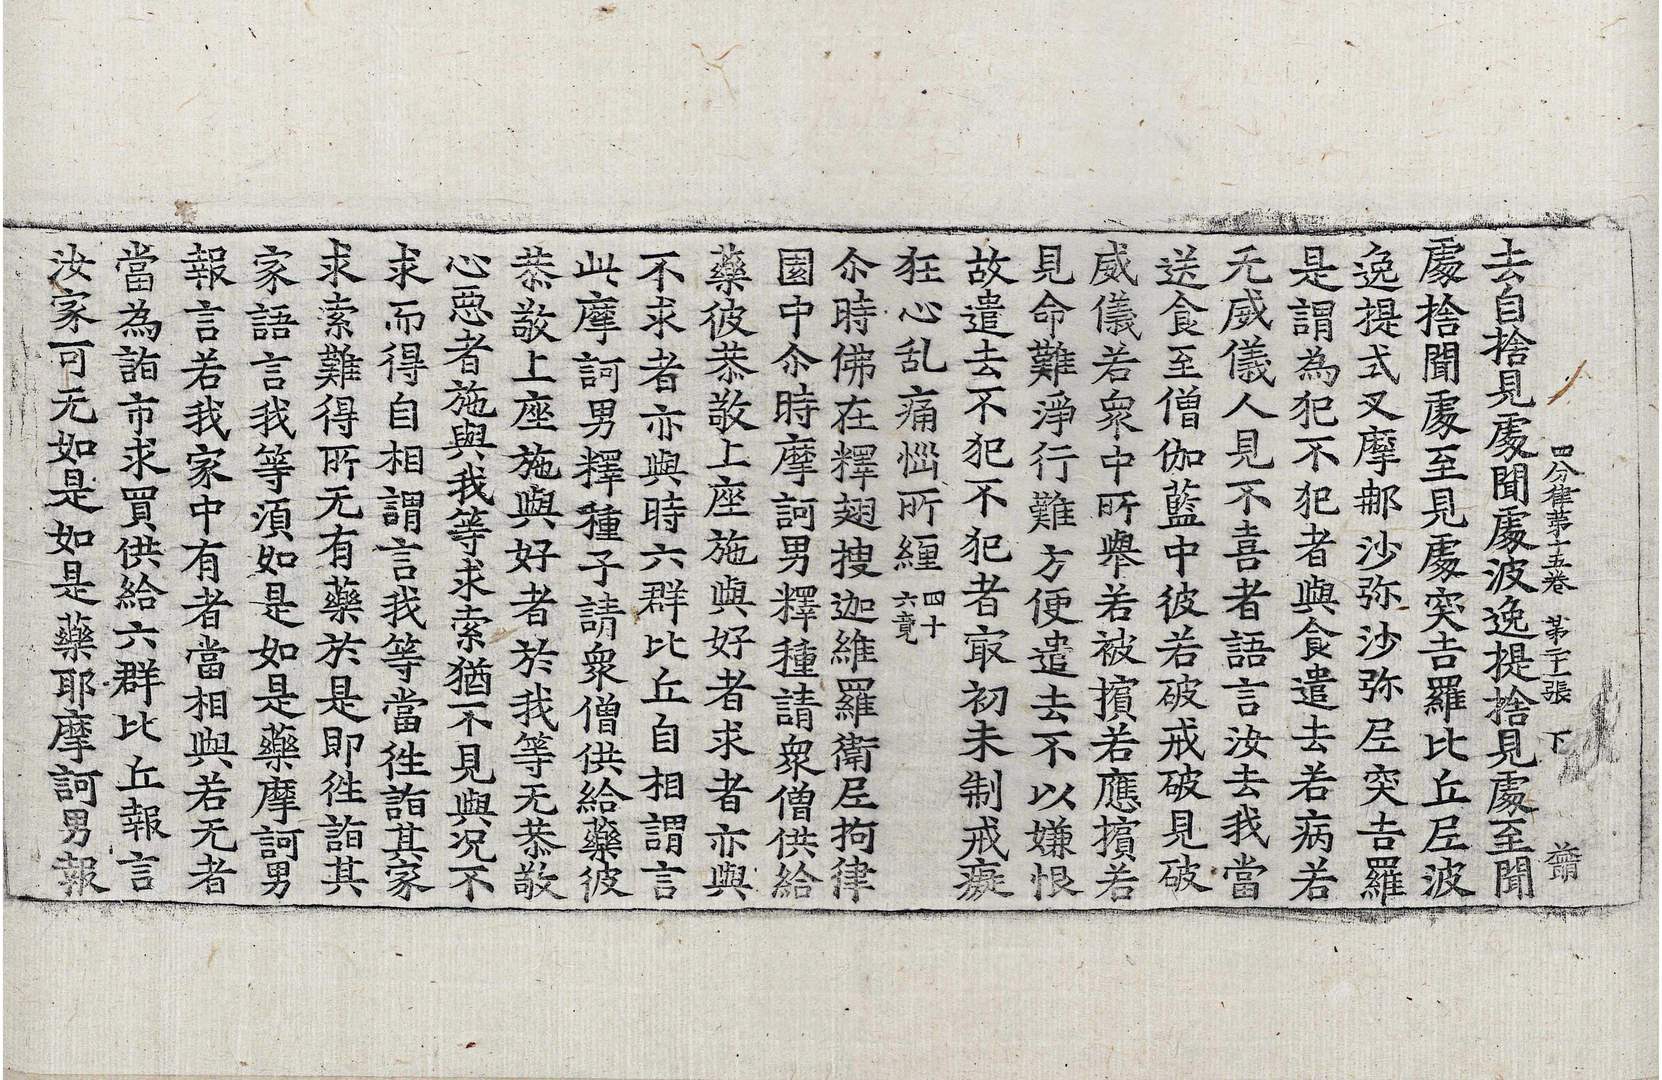 四分律第十五卷 第二十張 下
去自捨見處聞處波逸提捨見處至聞
處捨聞處至見處突吉羅比丘尼波
逸提式叉摩那沙弥沙弥尼突吉羅
是謂為犯不犯者與食遣去若病若
无威儀人見不喜者語言汝去我當
送食至僧伽藍中彼若破戒破見破
威儀若衆中所舉若被擯若應擯若
見命難淨行難方便遣去不以嫌恨
故遣去不犯不犯者㝡初未制戒癡
狂心乱痛惱所纏四十六竟
尒時佛在釋翅搜迦維羅衛尼拘律
園中尒時摩訶男釋種請衆僧供給
藥彼恭敬上座施與好者求者亦與
不求者亦與時六群比丘自相謂言
此摩訶男釋種子請衆僧供給藥彼
恭敬上座施與好者於我等无恭敬
心惡者施與我等求索猶不見與况不
求而得自相謂言我等當徃詣其家
求索難得所无有藥於是即徃詣其
家語言我等湏如是如是藥摩訶男
報言若我家中有者當相與若无者
當為詣市求買供給六群比丘報言
汝家可无如是如是藥耶摩訶男報